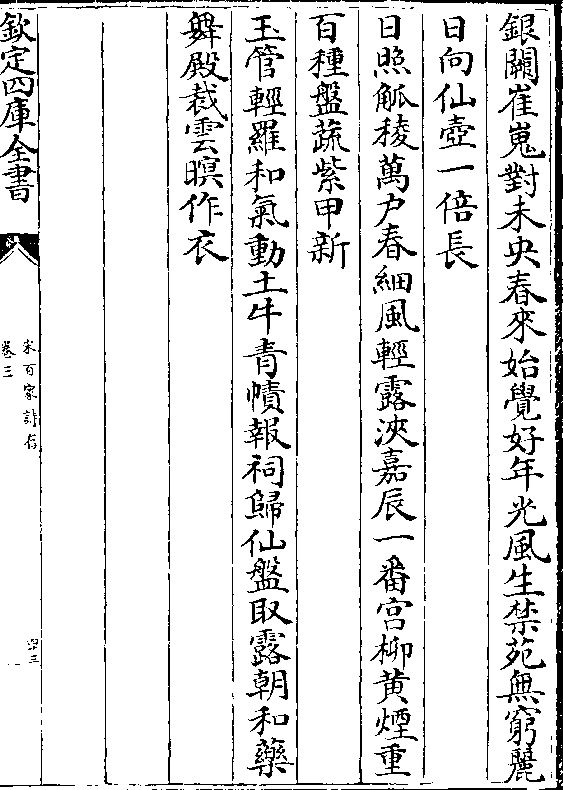 銀闕崔嵬對未央春來始覺好年光風生禁苑無窮麗
日向仙壺一倍長
日照觚稜萬户春細風輕露浹嘉辰一番宫柳黄煙重
百種盤蔬紫甲新
玉管輕羅和氣動土牛青幘報祠歸仙盤取露朝和藥
舞殿裁雲暝作衣
欽定四庫全書
宋百家詩存
卷三
四三